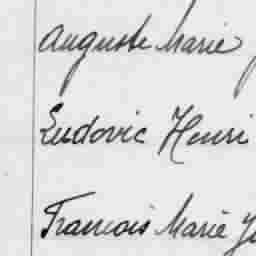 Auguste Marie
Ludovic Henri
Francois Marie